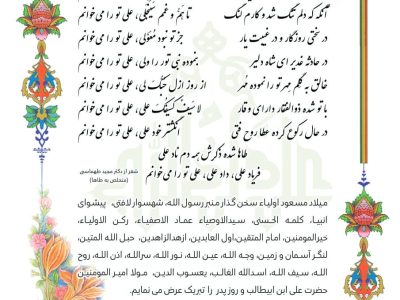 آنگه که دلم تنگ شد و کارم لنگ تا هَمّ و غمم سَیَنجَلی، علی تو را می‌خوانم
در سختی روزگار و در غیبت یار جز تو نبود مُعَوَّلی، علی تو را می‌خوانم
در حادثه غدیر ای شاه دلیر بنموده نبی تو را ولی، علی تو را می‌خوانم
خالق به گلم مِهر تو را نموده مُهر از روز ازل لی، علی تو را می‌خوانم
با تو شده ذوالفقار دارای وقار لا سَیفَ کَسَیفِکَ علی، علی تو را می‌خوانم
در حال رکوع کرده عطا روح فتی انگشتر خود علی، علی تو را می‌خوانم
طاها شده ذکرش همه دم ناد علی
فریاد علی، داد علی، علی تو را می‌خوانم
شعر از دکتر مجید طهماسبی
(متخلص به طاها)
میلاد مسعود اولیاء سخن گذار منبر رسول الله، شهسوار لافتی، پیشوای
انبیا، کلمه الحسنی، سیدالاوصیاء عماد الاصفیاء، رکن الاولیاء،
خیرالمومنین، امام المتقین، اول العابدین، ازهدالزاهدین، حبل الله المتین،
لنگر آسمان و زمین، وجه الله، عین الله، نور الله، سرالله، اذن الله، روح
الله، سیف الله، اسدالله الغالب، یعسوب الدین، مولا امیر المومنین
حضرت علی ابن ابیطالب و روز پدر را تبریک عرض می نمایم.